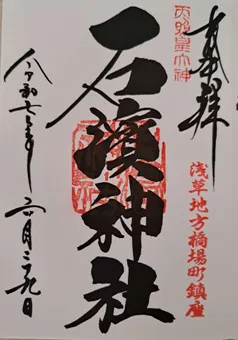 奉拝
天照皇大神
石濱神社
浅草地方橋場町鎮座
令和七年
六月二十九日